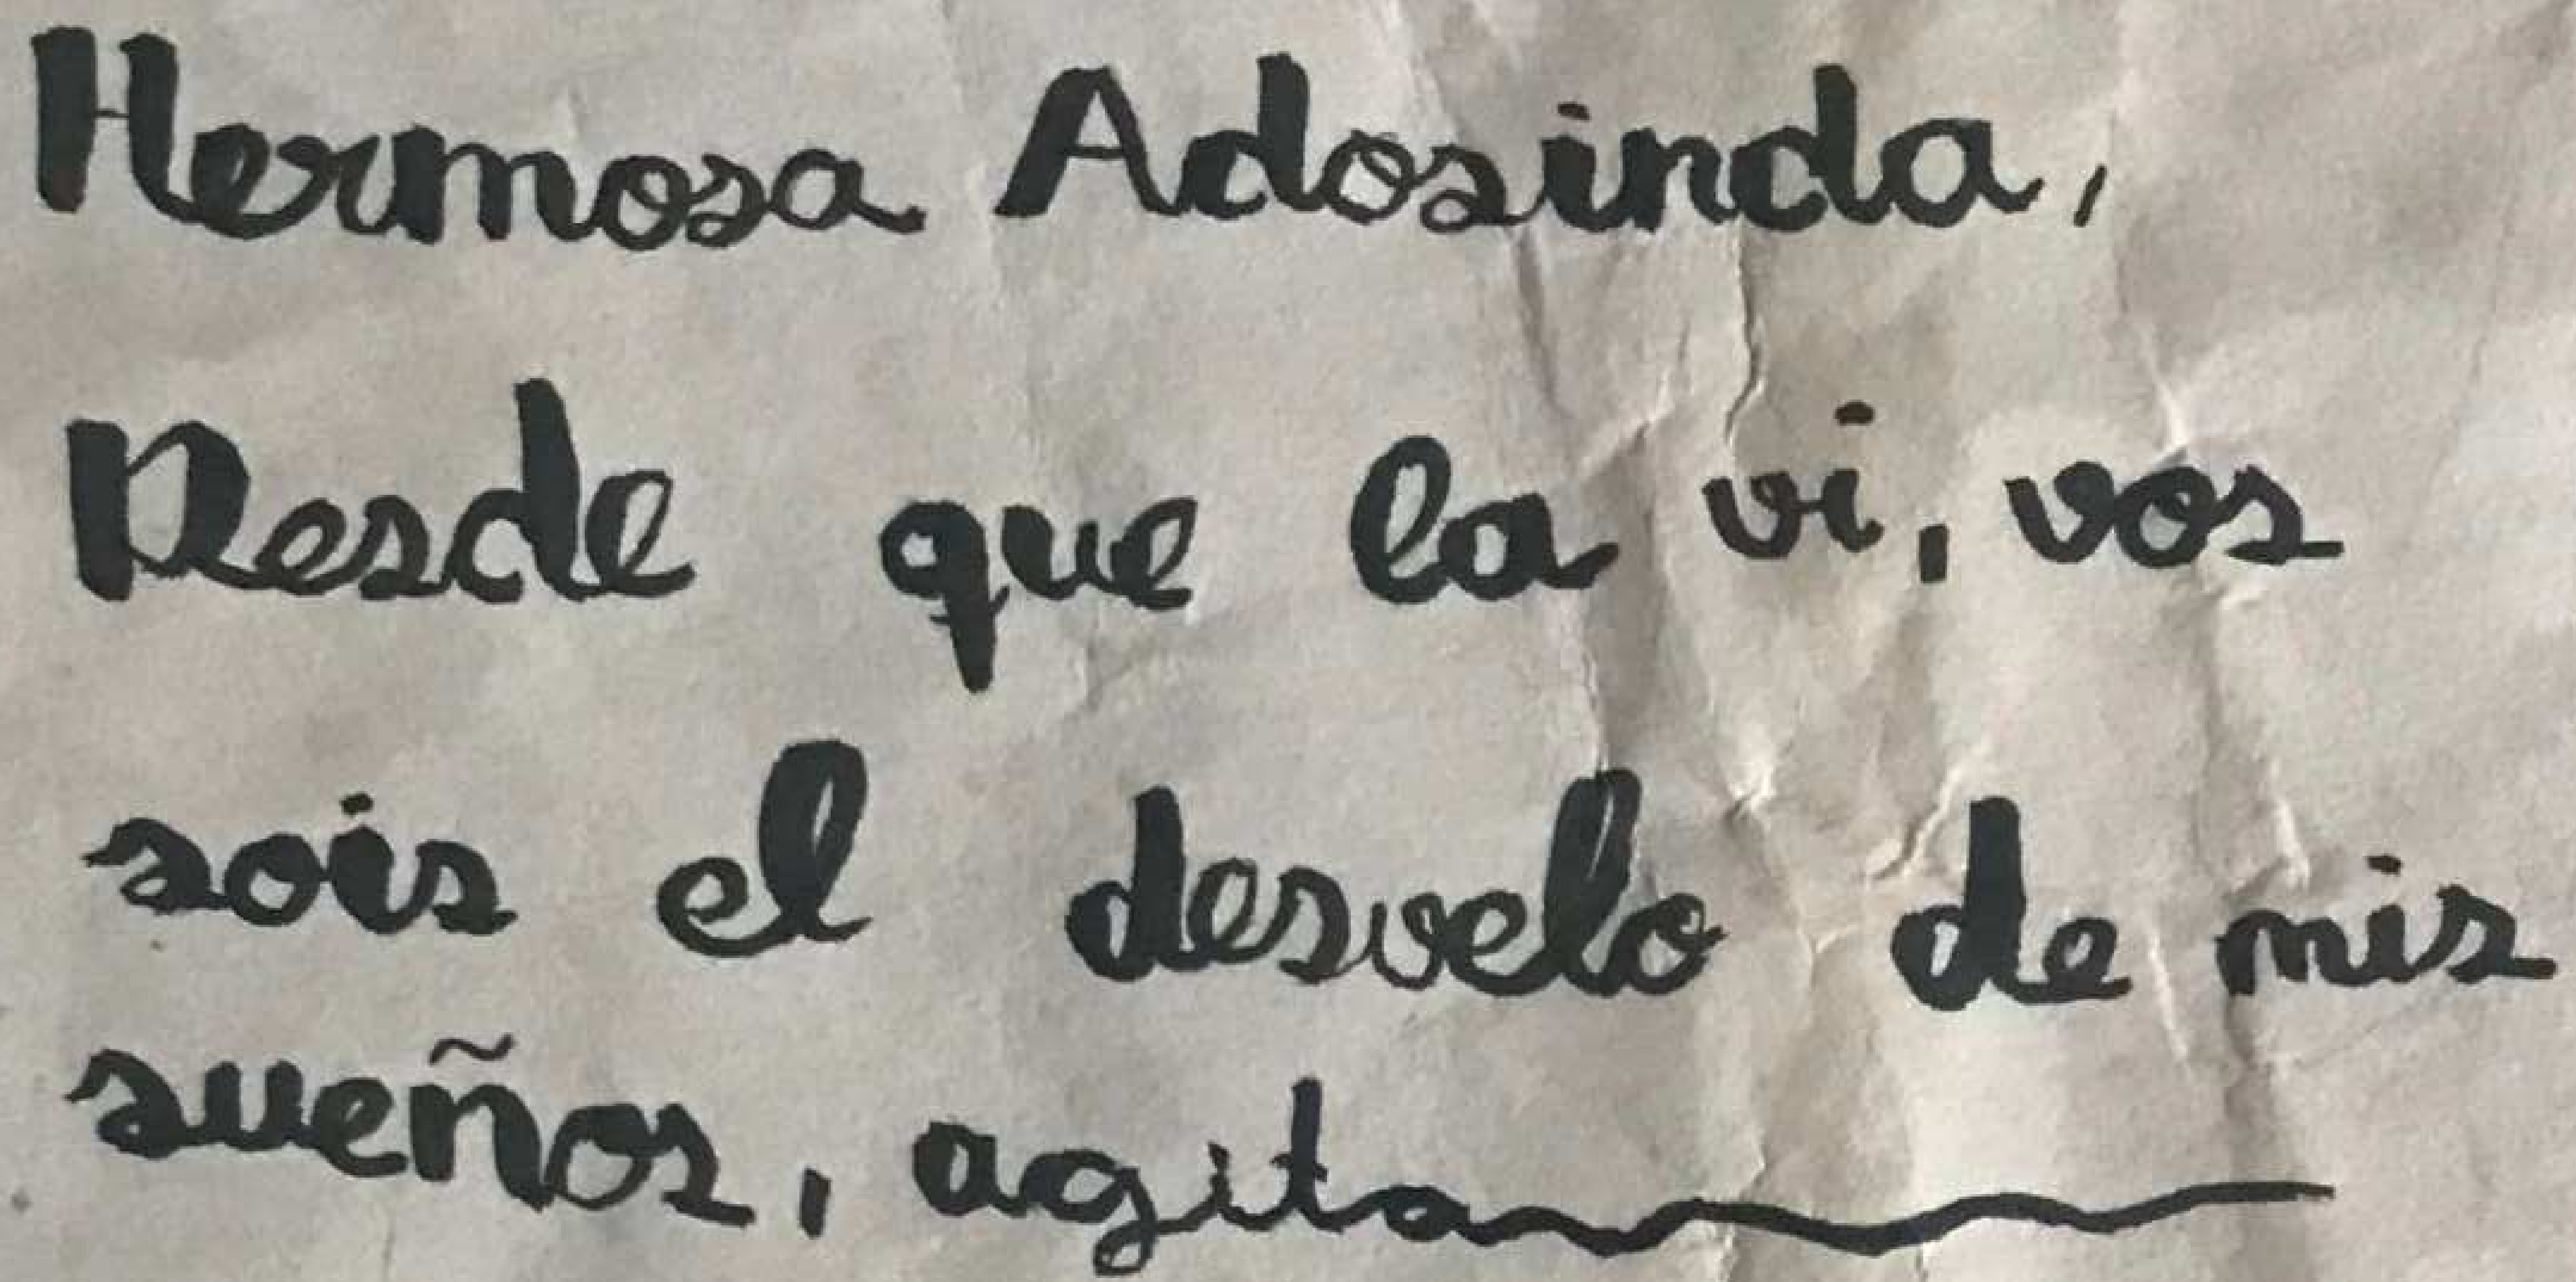 Hermosa Adosinda,
Desde que la vi, vos
sois el desvelo de mis
sueños, agita